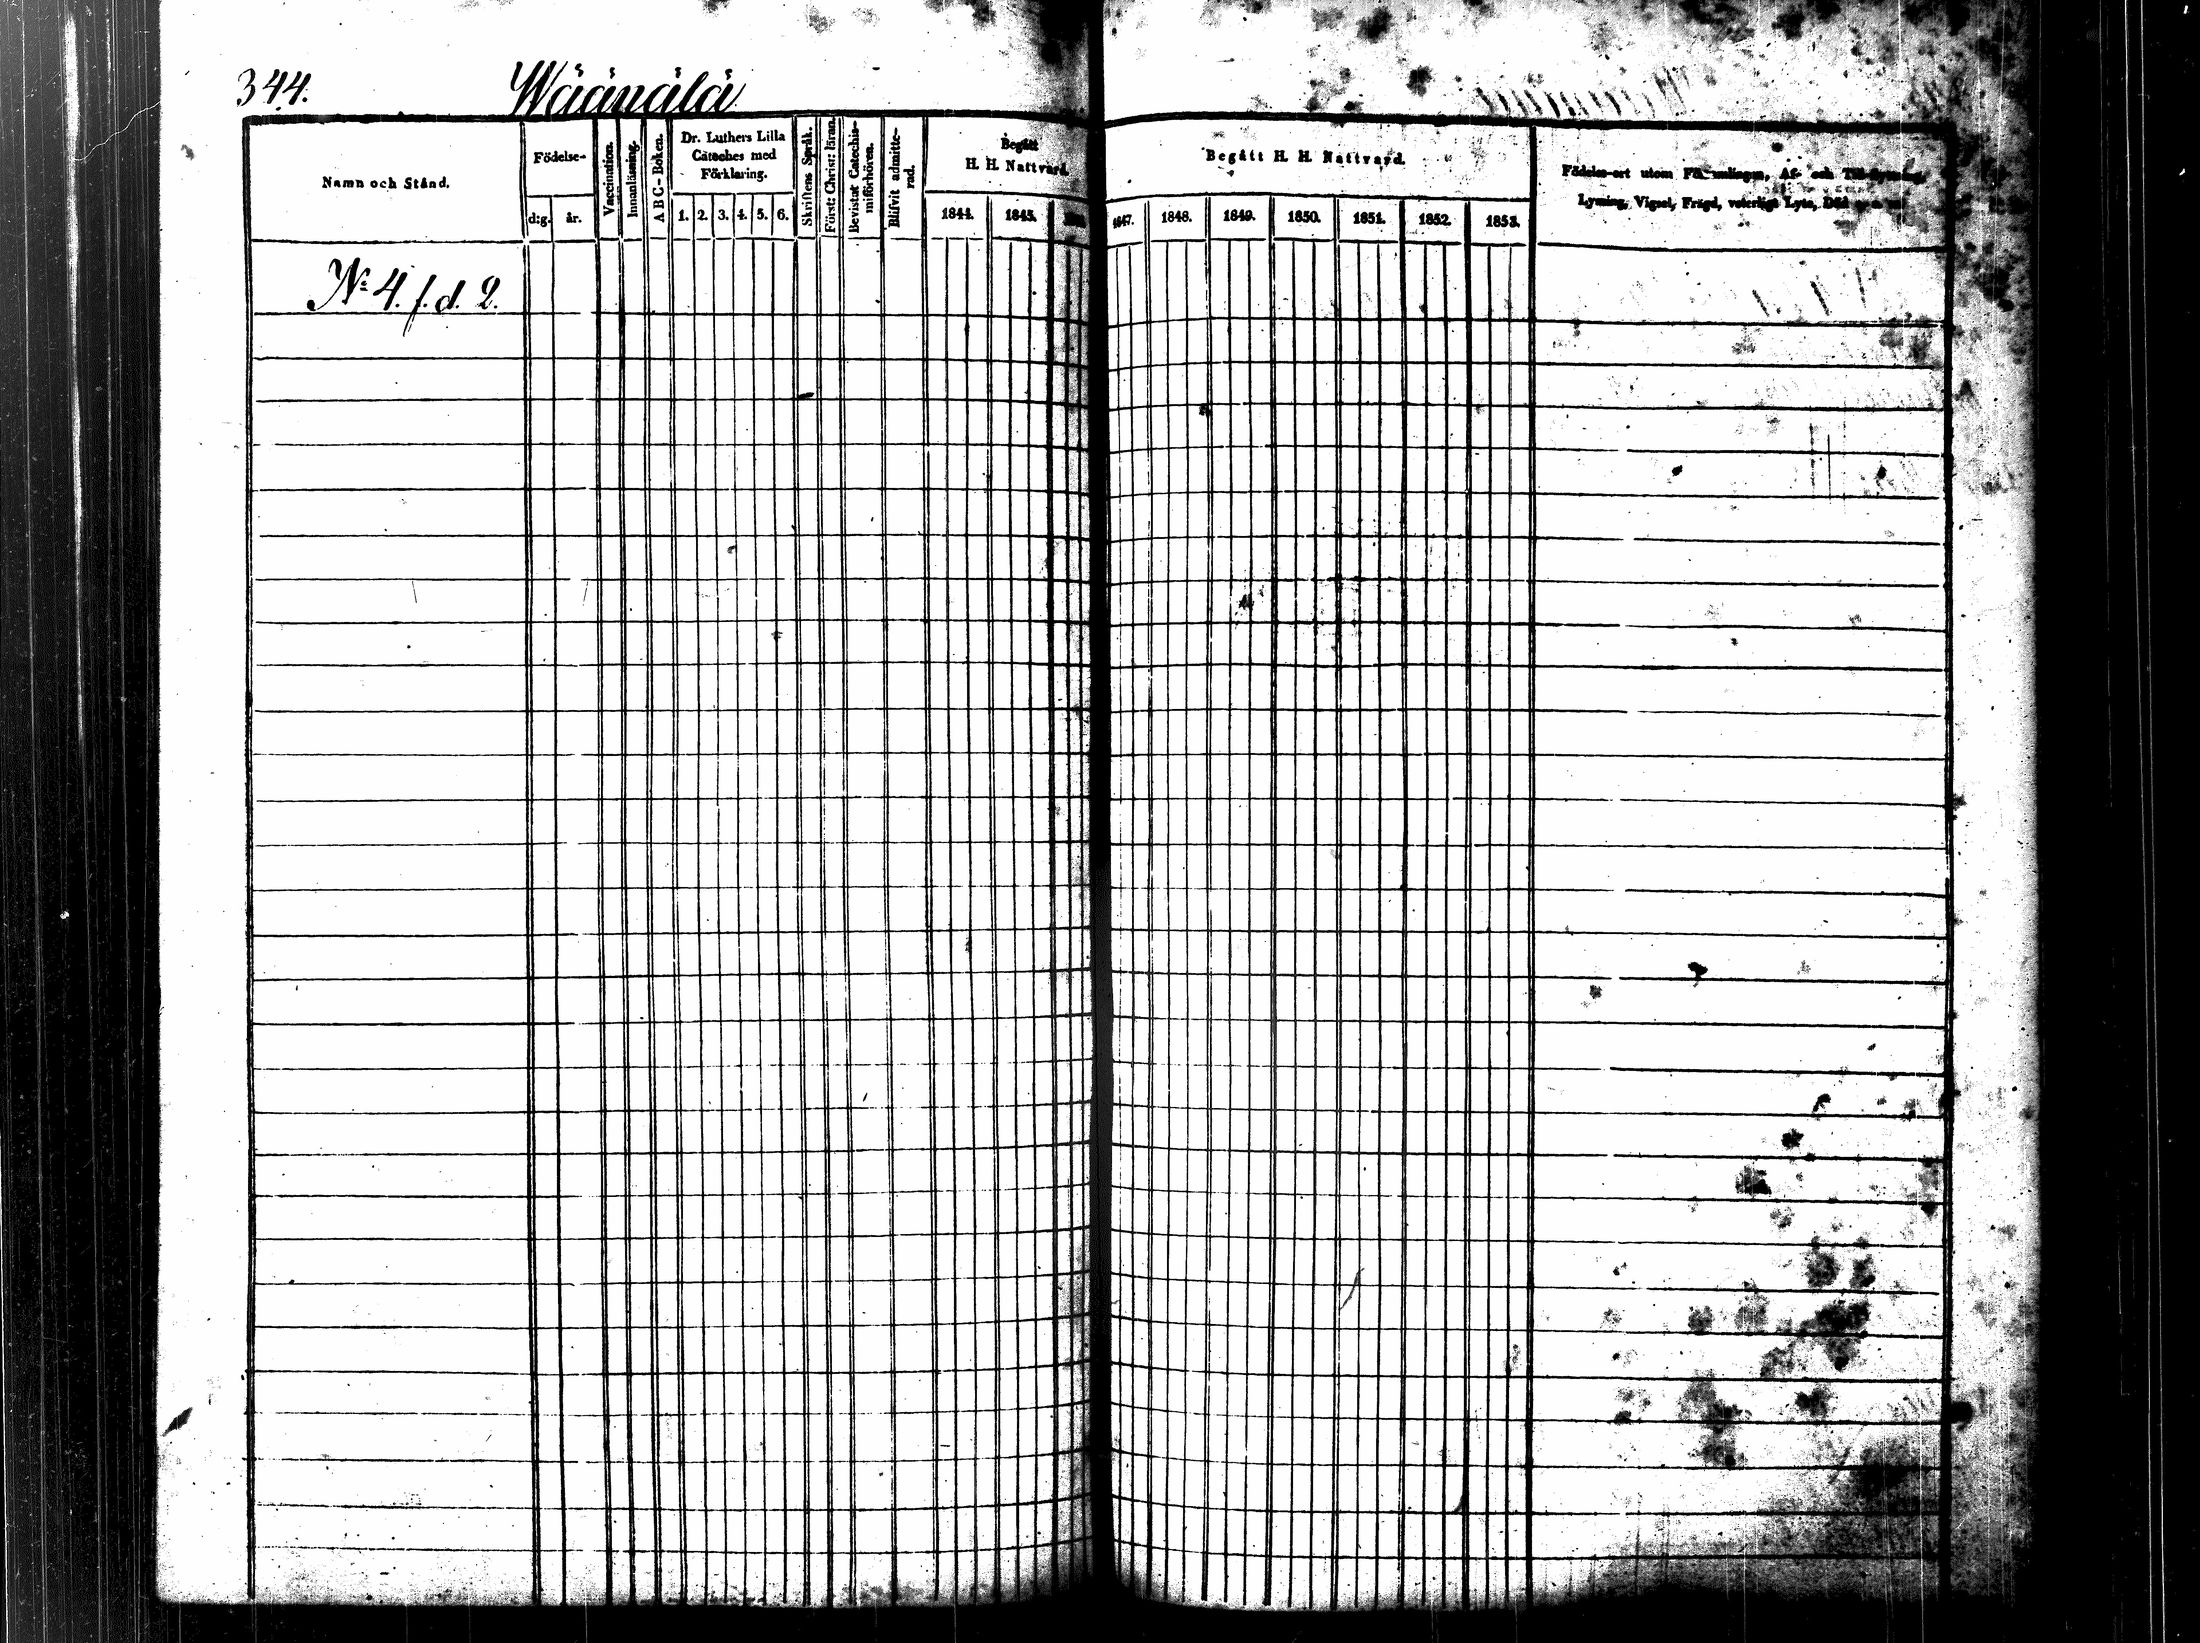 344. Wäänälä
Namn och Stånd.
Födelse-
d:g. år.
Vaccination.
Innanläsning.
A B C-Boken.
Dr. Luthers Lilla
Cateches med
Förklaring.
1. 2. 3. 4. 5. 6.
Skriftens Språk.
Först: Christ: läran.
Bevistat Catechis-
miförhören.
Blifvit admitte-
rad.
Begått
H. H. Nattvard.
1844. 1845.
Begått H. H. Nattvard.
1847. 1848. 1849. 1850. 1851. 1852. 1853.
Födelse-ort utom Församlingen, Af- och Till-flyttning,
Lysning, Vigsel, Frägd, veterliga Lyte, Död
N:o 4. f. d. 2.